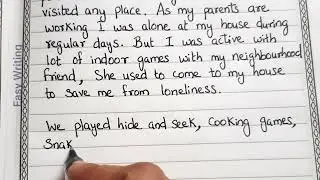 visited any place. As my parents are
working I was alone at my house during
regular days. But I was active with
lot of indoor games with my neighbourhood
friend, She used to come to my house
to save me from loneliness.
We played hide and seek, cooking games,
Snak
Easy Writing